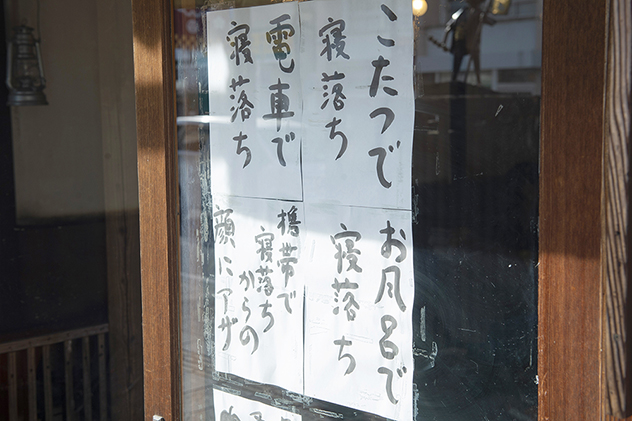 こたつで
寝落ち
電車で
寝落ち
お風呂で
寝落ち
携帯で
寝落ち
からの
顔にアザ